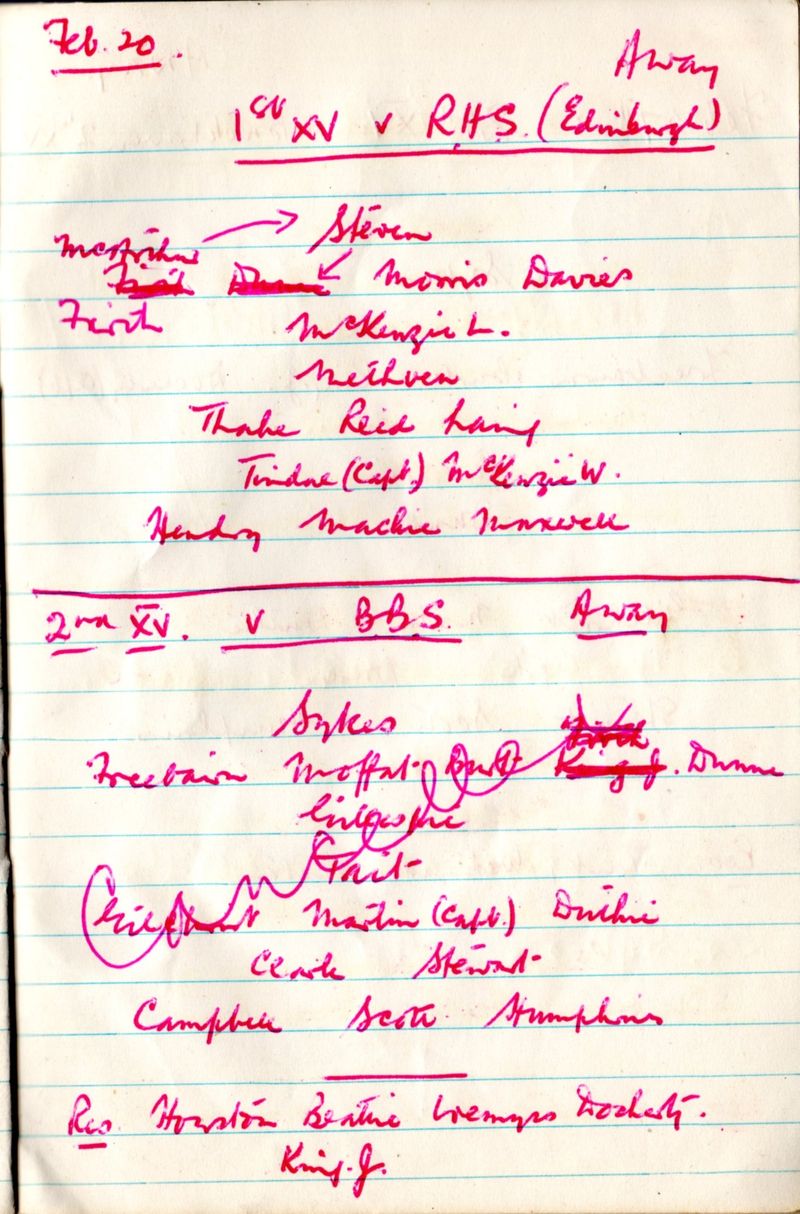 Feb. 20.
Away
1st XV v R.H.S. (Edinburgh)
Steven
McArthur
Firth Dunne Morris Davies
Firth McKenzie L.
Methven
Thake Reid Laing
Tindal (Capt.) McKenzie W.
Hendry Mackie Maxwell
2nd XV. v B.B.S. Away
Sykes
Firth
Freebairn Moffat Burt King J. Dunne
Gillespie
Tait
Martin (Capt.) Duthie
Clark Stewart
Campbell Scott Humphries
Res. Howston Beattie Wemyss Docherty.
King. J.